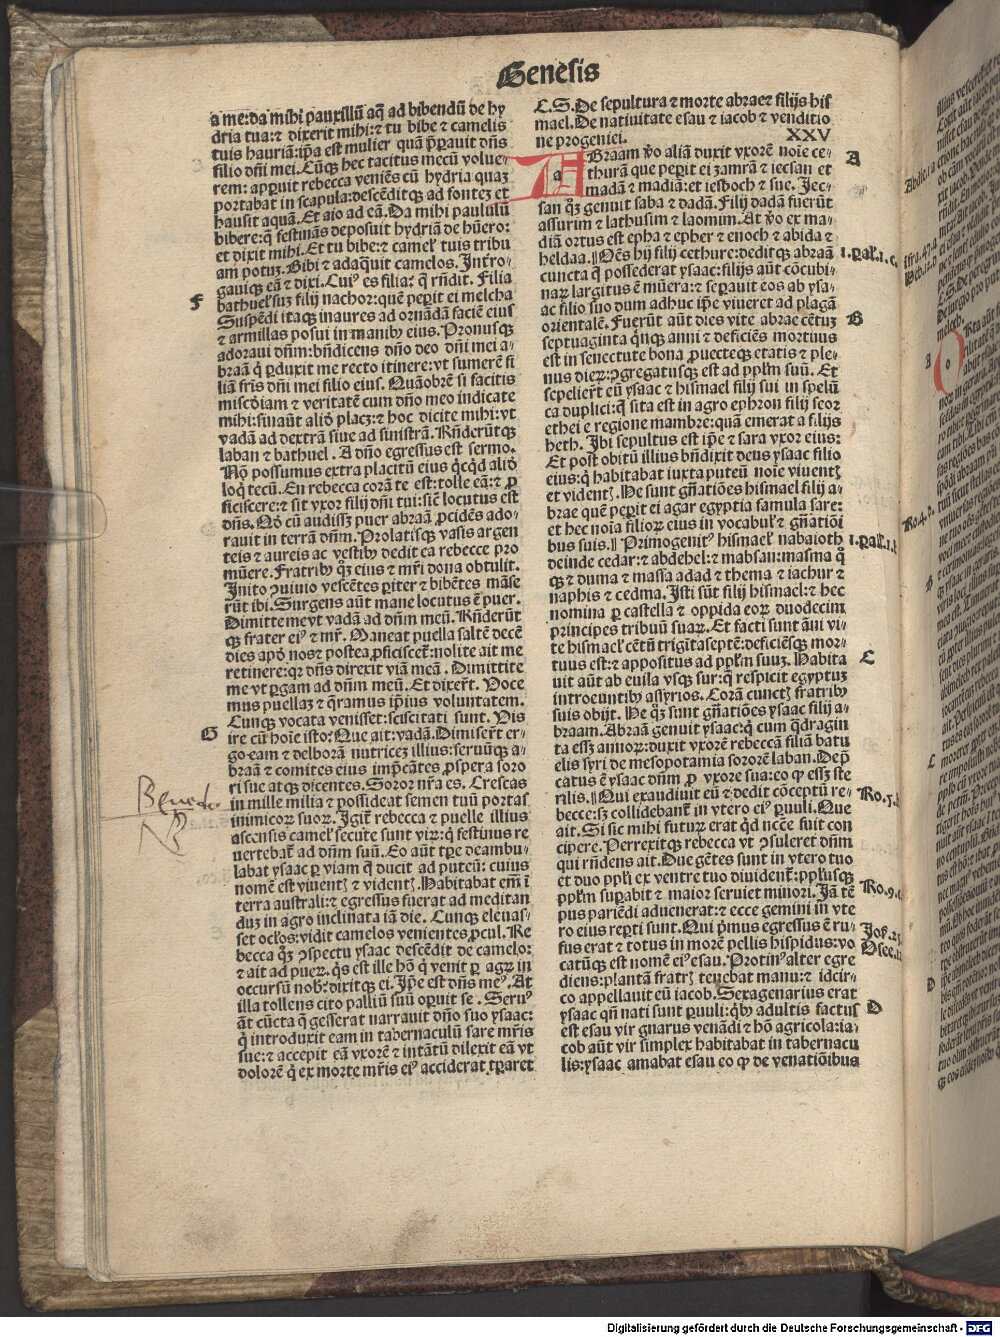 Genesis
a me: da mihi pauxillū aq̄ ad bibendū de hy
dria tua: ⁊ dixerit mihi: ⁊ tu bibe ⁊ camelis
tuis hauriā: ip̄a est mulier quā p̄parauit dn̄s
filio dn̄i mei. Cūqꝫ hec tacitus mecū volue-
rem: apparuit rebecca veniēs cū hydria quaꝫ
portabat in scapula: descēditqꝫ ad fonteꝫ et
hausit aquā. Et aio ad eā. Da mihi paululū
bibere: q̄ festinās deposuit hydriā de hūero:
et dixit mihi. Et tu bibe: ⁊ camelꝭ tuis tribu
am potuꝫ. Bibi ⁊ adaq̄uit camelos. Intro-
gauiqꝫ eā ⁊ dixi. Cuiꝰ es filia: q̄ rn̄dit. Filia
bathuelꝭ suꝫ filij nachor: quē peꝑit ei melcha
Suspēdi itaqꝫ inaures ad ornādā faciē eius
⁊ armillas posui in manibꝰ eius. Pronusqꝫ
adoraui dn̄m: bn̄dicens dn̄o deo dn̄i mei a-
braā q̄ ꝑduxit me recto itinere: vt sumerē fi
liā fr̄is dn̄i mei filio eius. Quāobrē si facitis
misc̄diam ⁊ veritatē cum dn̄o meo indicate
mihi: sinaūt aliō̄ placꝫ: ⁊ hoc dicite mihi: vt
vadā ad dextrā siue ad sinistrā. Rn̄derūtqꝫ
laban ⁊ bathuel. A dn̄o egressus est sermo.
Nō possumus extra placitū eius q̄cq̄d aliō̄
loq̄ tecū. En rebecca corā te est: tolle eā: ⁊ ꝓ
ficiscere: ⁊ sit vxor filij dn̄i tui: sic̄ locutus est
dn̄s. Qō̄ cū audissꝫ puer abraā ꝓcidēs ado-
rauit in terrā dn̄m. Prolatisqꝫ vasis argen
teis ⁊ aureis ac vestibꝰ dedit ea rebecce pro
mūere. Fratribꝰ qꝫ eius ⁊ mr̄i dona obtulit.
Inito ↄuiuio vescētes ꝑiter ⁊ bibētes māse
rūt ibi. Surgens aūt mane locutus ē puer.
Dimitte me vt vadā ad dn̄m meū. Rn̄derūt
qꝫ frater eiꝰ ⁊ mr̄. Maneat puella saltē decē
dies apō̄ nos ⁊ postea ꝓficiscet̄: nolite ait me
retinere: qr dn̄s direxit viā meā. Dimittite
me vt ꝑgam ad dn̄m meū. Et dixer̄t. Voce
mus puellaꝫ ⁊ q̄ramus ip̄ius voluntatem.
Cunqꝫ vocata venisset: sciscitati sunt. Vis
ire cū hoīe isto: Que ait: vadā. Dimiser̄t er-
go eam ⁊ delborā nutriceꝫ illius: seruūqꝫ a-
braā ⁊ comites eius imp̄cātes ꝓspera soro
ri sue atqꝫ dicentes. Soror nr̄a es. Crescas
in mille milia ⁊ possideat semen tuū portas
inimicoꝝ suoꝝ. Igit̄ rebecca ⁊ puelle illius
ascensis camelꝭ secute sunt viꝝ: q̄ festinus re
uertebat̄ ad dn̄m suū. Eo aūt tp̄e deambu-
labat ysaac ꝑ viam q̄ ducit ad puteū: cuius
nomē est viuentꝭ ⁊ videntꝭ. Habitabat em̄ ī
terra australi: ⁊ egressus fuerat ad meditan
duꝫ in agro inclinata iā die. Cunqꝫ eleuas-
set oclōs: vidit camelos venientes ꝓcul. Re
becca qꝫ ↄspectu ysaac descēdit de camelo:
⁊ ait ad pueꝝ. q̄s est ille hō q̄ venit ꝑ agꝝ in
occursū nobꝭ: dixitqꝫ ei. Ip̄e est dn̄s meꝰ. At
illa tollens cito palliū suū oꝑuit se. Seruꝰ
āt cūcta q̄ gesserat narrauit dn̄o suo ysaac:
q̄ introduxit eam in tabernaculū sare mr̄is
sue: ⁊ accepit eā vxorē ⁊ intātū dilexit eā vt
dolorē q̄ ex morte mr̄is eiꝰ acciderat tꝑaret
F
G
C.S. De sepultura ⁊ morte abrae ⁊ filijs his
mael. De natiuitate esau ⁊ iacob ⁊ venditio
ne progeniei. XXV
ABraam v̄o aliā duxit vxorē noīe ce-
thurā que peꝑit ei zamrā ⁊ iecsan et
madā ⁊ madiā: et iesboch ⁊ sue. Iec-
san qꝫ genuit saba ⁊ dadā. Filij dadā fuerūt
assurim ⁊ lathusim ⁊ laomim. At v̄o ex ma-
diā ortus est epha ⁊ epher ⁊ enoch ⁊ abida ⁊
heldaa. Oēs hij filij cethure: deditqꝫ abraā
cuncta q̄ possederat ysaac: filijs aūt cōcubi-
naꝝ largitus ē mūera: ⁊ seꝑauit eos ab ysa-
ac filio suo dum adhuc ip̄e viueret ad plagā
orientalē. Fuerūt aūt dies vite abrae cētuꝫ
septuaginta q̄nqꝫ anni ⁊ deficiēs mortuus
est in senectute bona ꝓuecteqꝫ etatis ⁊ ple-
nus dieꝝ: ↄgregatusqꝫ est ad pplm̄ suū. Et
sepelier̄t eū ysaac ⁊ hismael filij sui in spelū
ca duplici: q̄ sita est in agro ephron filij seor
ethei e regione mambre: quā emerat a filijs
heth. Ibi sepultus est ip̄e ⁊ sara vxor eius:
Et post obitū illius bn̄dixit deus ysaac filio
eius: q̄ habitabat iuxta puteū noīe viuentꝭ
et videntꝭ. He sunt gn̄atiōes hismael filij a-
brae quē peꝑit ei agar egyptia famula sare:
et hec noīa filioꝝ eius in vocabulꝭ ⁊ gn̄atiōi
bus suis. Primogenitꝰ hismaelꝭ nabaioth
deinde cedar: ⁊ abdehel: ⁊ mabsan: masma q̄
qꝫ ⁊ duma ⁊ massa adad ⁊ thema ⁊ iachur ⁊
naphis ⁊ cedma. Isti sūt filij hismael: ⁊ hec
nomina ꝑ castella ⁊ oppida eoꝝ duodecim
principes tribuū suaꝝ. Et facti sunt āni vi-
te hismaelꝭ cētū trigītaseptē: deficiēsqꝫ mor-
tuus est: ⁊ appositus ad pplm̄ suuꝫ. Habita
uit aūt ab euila vsqꝫ sur: q̄ respicit egyptuꝫ
introeuntibꝰ assyrios. Corā cunctꝭ fratribꝰ
suis obijt. He qꝫ sunt gn̄atiōes ysaac filij a-
braam. Abraā genuit ysaac: q̄ cum q̄dragin
ta essꝫ annoꝝ: duxit vxorē rebeccā filiā batu
elis syri de mesopotamia sororē laban. Dep̄
catus ē ysaac dn̄m ꝓ vxore sua: eo qꝙ essꝫ ste
rilis. Qui exaudiuit eū ⁊ dedit cōceptū re-
becce: sꝫ collidebant̄ in vtero eiꝰ ꝑuuli. Que
ait. Si sic mihi futuꝝ erat q̄d nc̄ce fuit con
cipere. Perrexitqꝫ rebecca vt ↄsuleret dn̄m
qui rn̄dens ait. Due gētes sunt in vtero tuo
et duo ppli ex ventre tuo diuident̄: pplusqꝫ
pplm̄ suꝑabit ⁊ maior seruiet minori. Iā tē
pus pariēdi aduenerat: ⁊ ecce gemini in vte
ro eius reꝑti sunt. Qui p̄mus egressus ē ru-
fus erat ⁊ totus in morē pellis hispidus: vo
catūqꝫ est nomē eiꝰ esau. Protinꝰ alter egre
diens: plantā fratrꝭ tenebat manu: ⁊ idcir-
co appellauit eū iacob. Sexagenarius erat
ysaac qn̄ nati sunt ꝑuuli: q̄bꝰ adultis factus
est esau vir gnarus venādi ⁊ hō agricola: ia-
cob aūt vir simplex habitabat in tabernacu
lis: ysaac amabat esau eo qꝙ de venatiōibus
A
1. Pal. 1. c.
B
1. Pal. 1. c
C
Ro. 9.
D
Digitalisierung gefördert durch die Deutsche Forschungsgemeinschaft - DFG